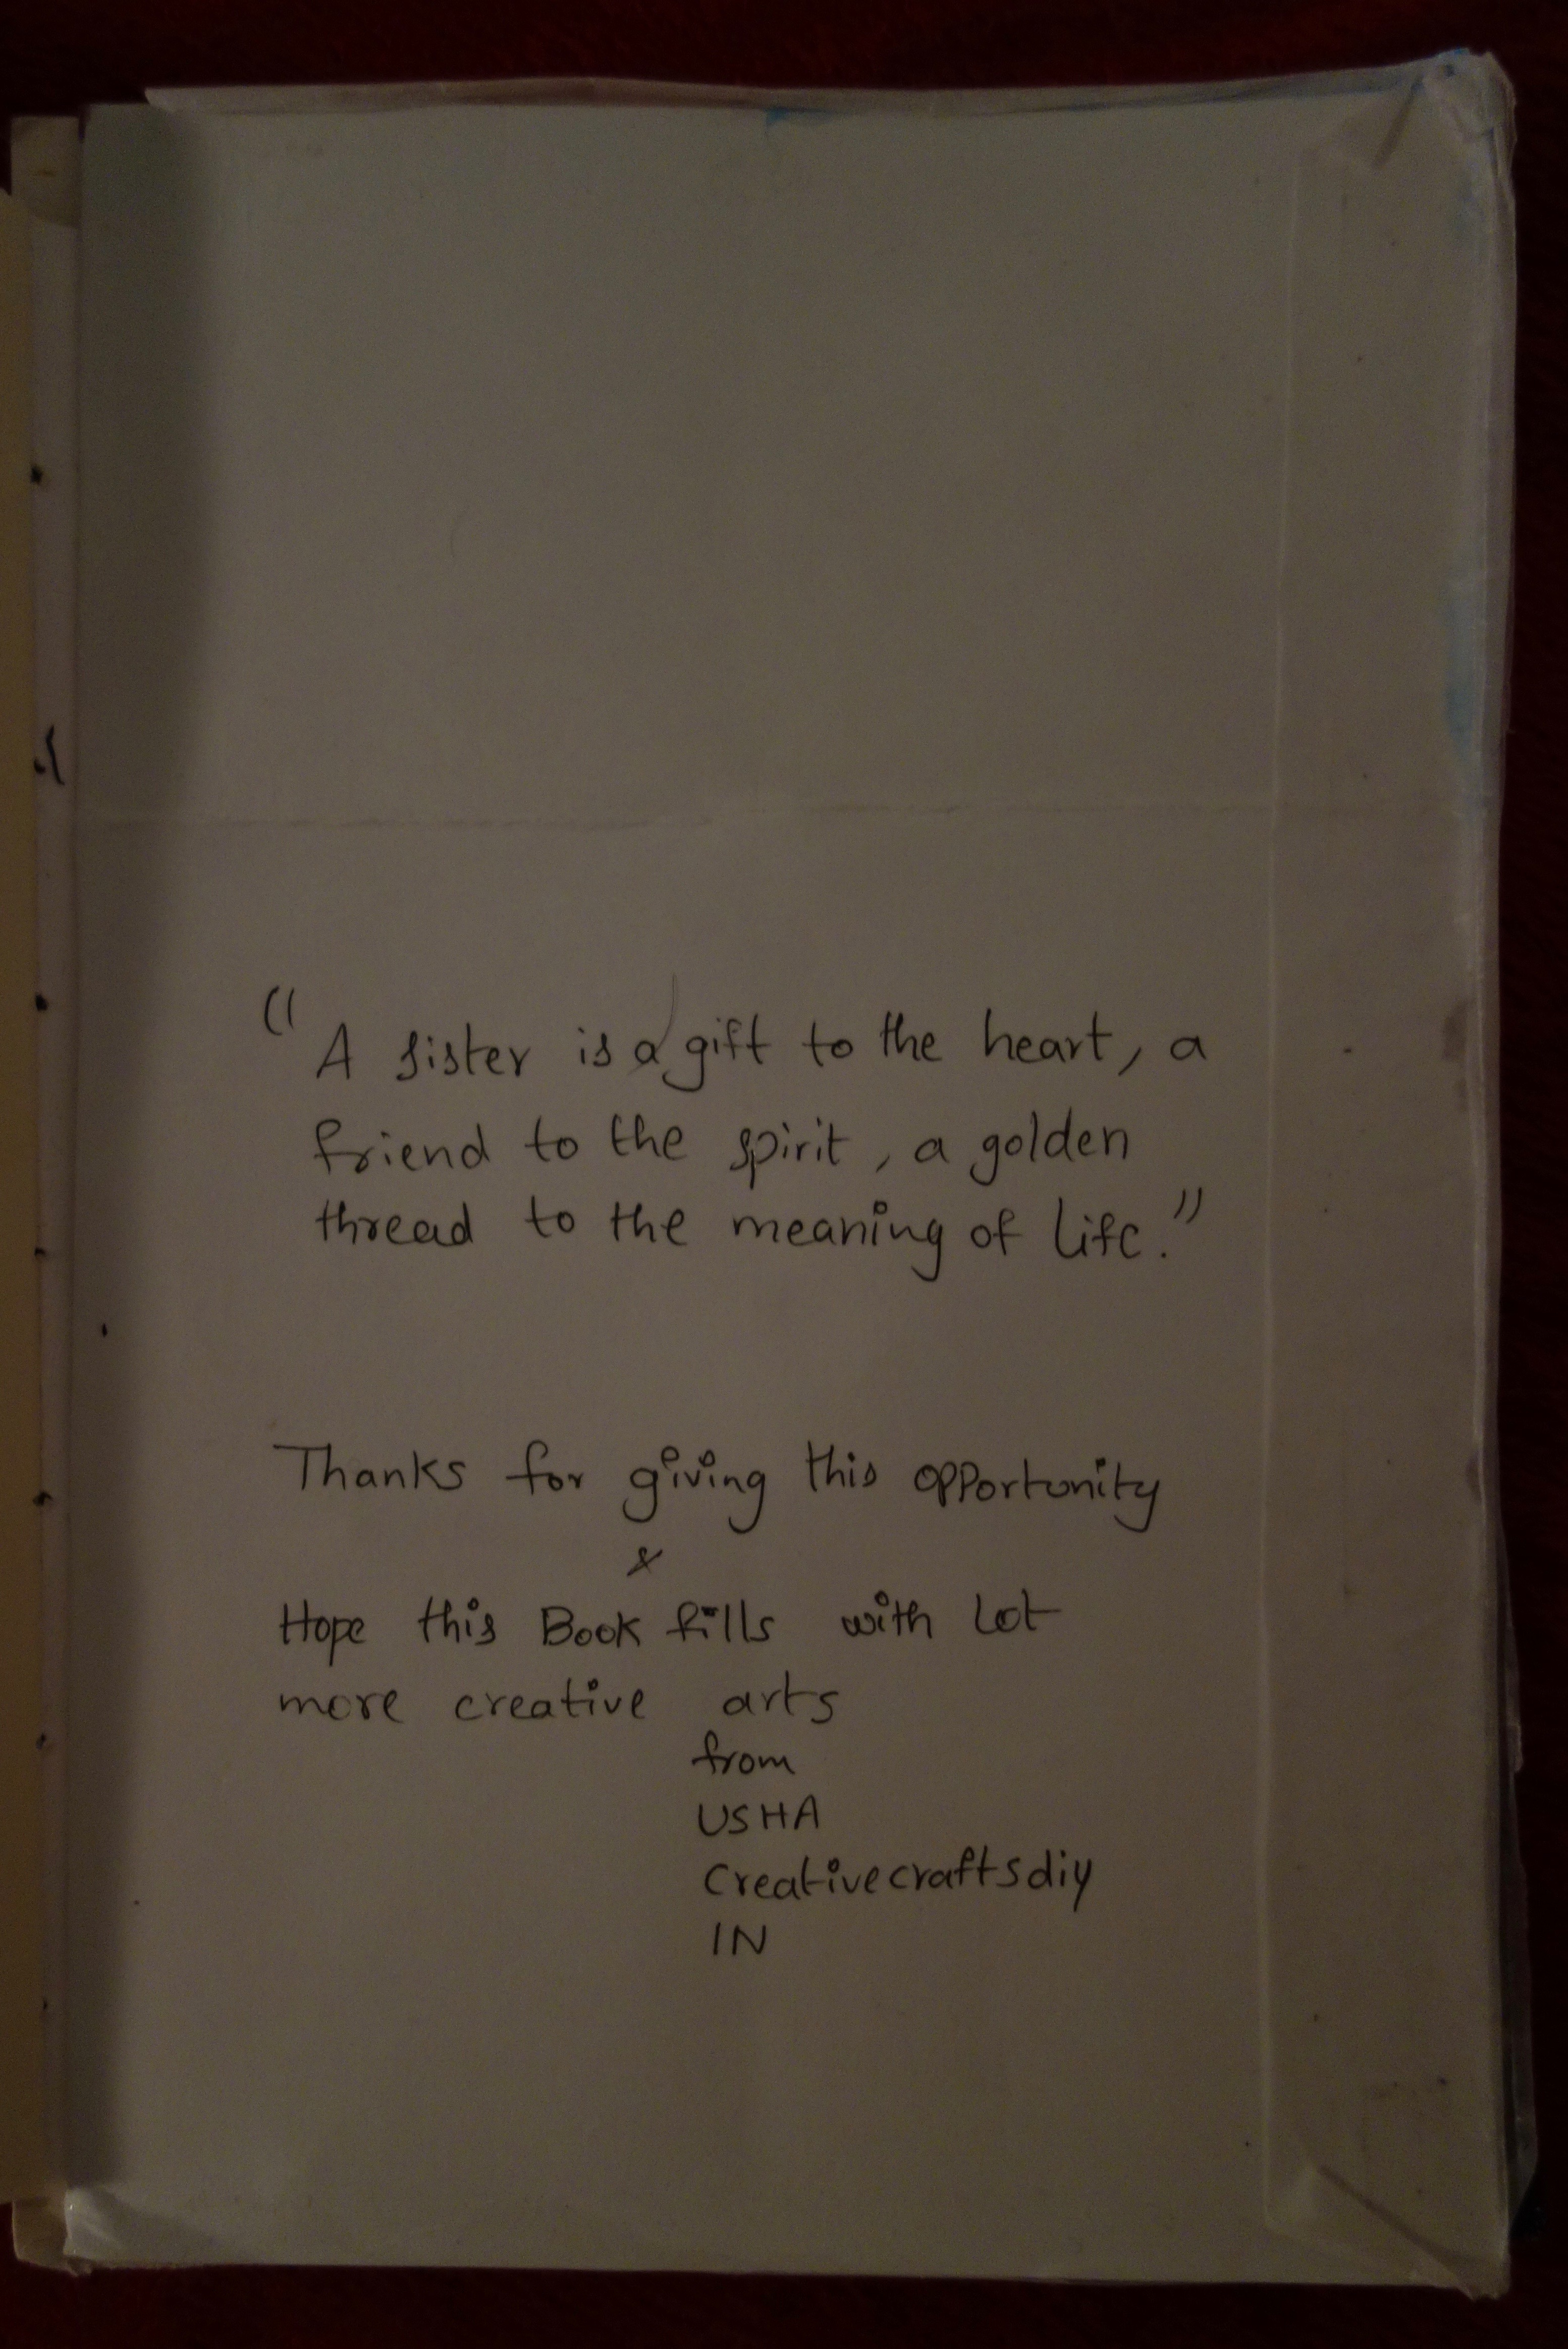 "A sister is a gift to the heart, a
friend to the spirit, a golden
thread to the meaning of life."
Thanks for giving this opportunity
&
Hope this Book fills with Lot
more creative arts
from
USHA
Creativecraftsdiy
IN